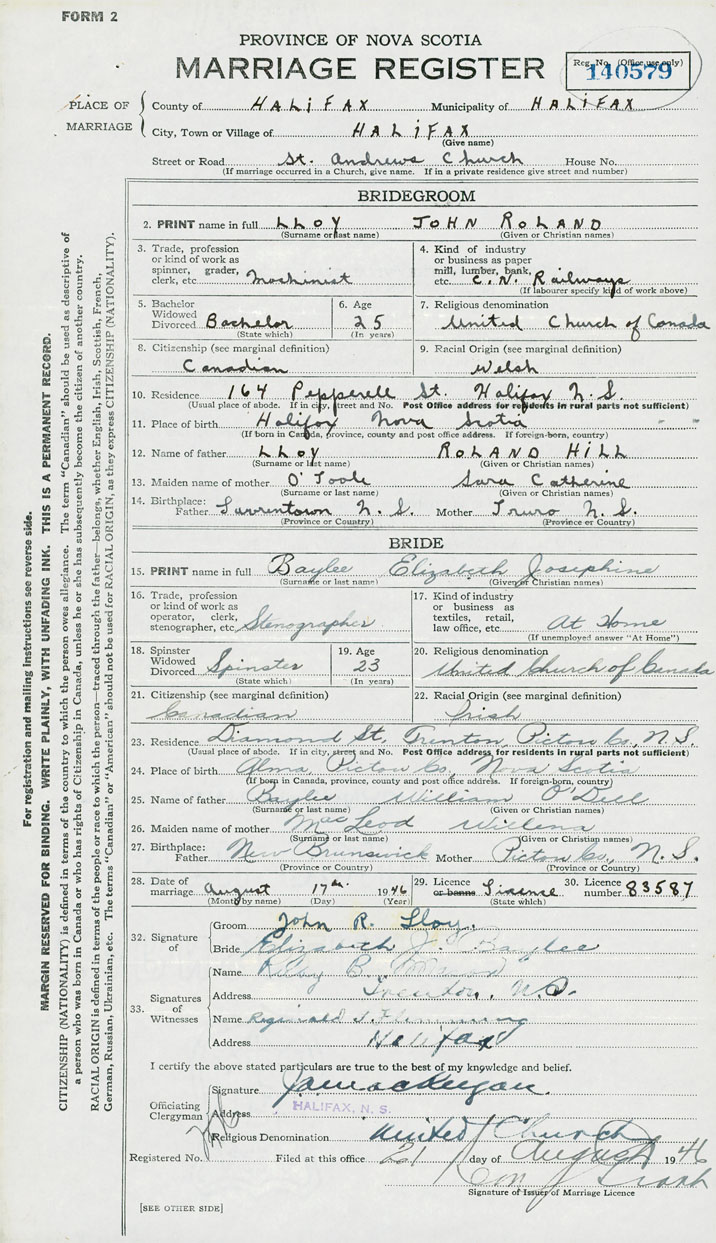 FORM 2
PROVINCE OF NOVA SCOTIA
MARRIAGE REGISTER
Reg. No. (Office use only)
140579
PLACE OF MARRIAGE
County of HALIFAX Municipality of HALIFAX
City, Town or Village of HALIFAX
(Give name)
Street or Road St. Andrews Church House No.
(If marriage occurred in a Church, give name. If in a private residence give street and number)
BRIDEGROOM
2. PRINT name in full LLOY JOHN ROLAND
(Surname or last name) (Given or Christian names)
3. Trade, profession or kind of work as spinner, grader, clerk, etc. Machinist
4. Kind of industry or business as paper mill, lumber, bank, etc. C.N. Railways
(If labourer specify kind of work above)
5. Bachelor Widowed Divorced Bachelor
(State which)
6. Age 25
(In years)
7. Religious denomination
United Church of Canada
8. Citizenship (see marginal definition)
Canadian
9. Racial Origin (see marginal definition)
Welsh
10. Residence 164 Pepperell St. Halifax N.S.
(Usual place of abode. If in city, street and No. Post Office address for residents in rural parts not sufficient)
11. Place of birth Halifax Nova Scotia
(If born in Canada, province, county and post office address. If foreign-born, country)
12. Name of father LLOY ROLAND HILL
(Surname or last name) (Given or Christian names)
13. Maiden name of mother O'Toole Sara Catherine
(Surname or last name) (Given or Christian names)
14. Birthplace: Father N.S. Mother Truro N.S.
(Province or Country) (Province or Country)
BRIDE
15. PRINT name in full Baylee Elizabeth Josephine
(Surname or last name) (Given or Christian names)
16. Trade, profession or kind of work as operator, clerk, stenographer, etc. Stenographer
17. Kind of industry or business as textiles, retail, law office, etc. At Home
(If unemployed answer "At Home")
18. Spinster Widowed Divorced Spinster
(State which)
19. Age 23
(In years)
20. Religious denomination
United Church of Canada
21. Citizenship (see marginal definition)
Canadian
22. Racial Origin (see marginal definition)
Irish
23. Residence Diamond St. Trenton Pictou Co., N.S.
(Usual place of abode. If in city, street and No. Post Office address for residents in rural parts not sufficient)
24. Place of birth Alma, Pictou Co., Nova Scotia
(If born in Canada, province, county and post office address. If foreign-born, country)
25. Name of father Baylee William O'Dell
(Surname or last name) (Given or Christian names)
26. Maiden name of mother MacLeod Willena
(Surname or last name) (Given or Christian names)
27. Birthplace: Father New Brunswick Mother Pictou Co., N.S.
(Province or Country) (Province or Country)
28. Date of marriage August 17th 1946
(Month by name) (Day) (Year)
29. Licence or banns
(State which)
30. Licence number 83587
32. Signature of
Groom John R. Lloy.
Bride Elizabeth J. Baylee
33. Signatures of Witnesses
Name B.
Address Trenton, N.S.
Name Reginald J. Flemming
Address Halifax
I certify the above stated particulars are true to the best of my knowledge and belief.
Officiating Clergyman
Signature
Address HALIFAX, N. S.
Religious Denomination United Church
Registered No. Filed at this office 21 day of August 1946
Signature of Issuer of Marriage Licence
[SEE OTHER SIDE]
For registration and mailing instructions see reverse side.
MARGIN RESERVED FOR BINDING. WRITE PLAINLY, WITH UNFADING INK. THIS IS A PERMANENT RECORD.
CITIZENSHIP (NATIONALITY) is defined in terms of the country to which the person owes allegiance. The term "Canadian" should be used as descriptive of
a person who was born in Canada or who has rights of Citizenship in Canada, unless he or she has subsequently become the citizen of another country.
RACIAL ORIGIN is defined in terms of the people or race to which the person—traced through the father—belongs, whether English, Irish, Scottish, French,
German, Russian, Ukrainian, etc. The terms "Canadian" or "American" should not be used for RACIAL ORIGIN, as they express CITIZENSHIP (NATIONALITY).